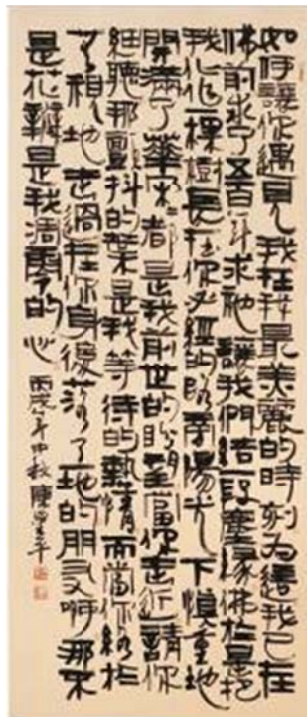 如何讓你遇見我在我最美麗的時刻為這我已在
佛前求了五百年求祂讓我們結一段塵緣佛於是把
我化作一棵樹長在你必經的路旁陽光下慎重地
開滿了華朵朵都是我前世的盼望當你走近請你
細聽那顫抖的葉是我等待的熱情而當你終於
无視地走過在你身後落了一地的朋友啊那不
是花瓣是我凋零的心 丙戌年中秋